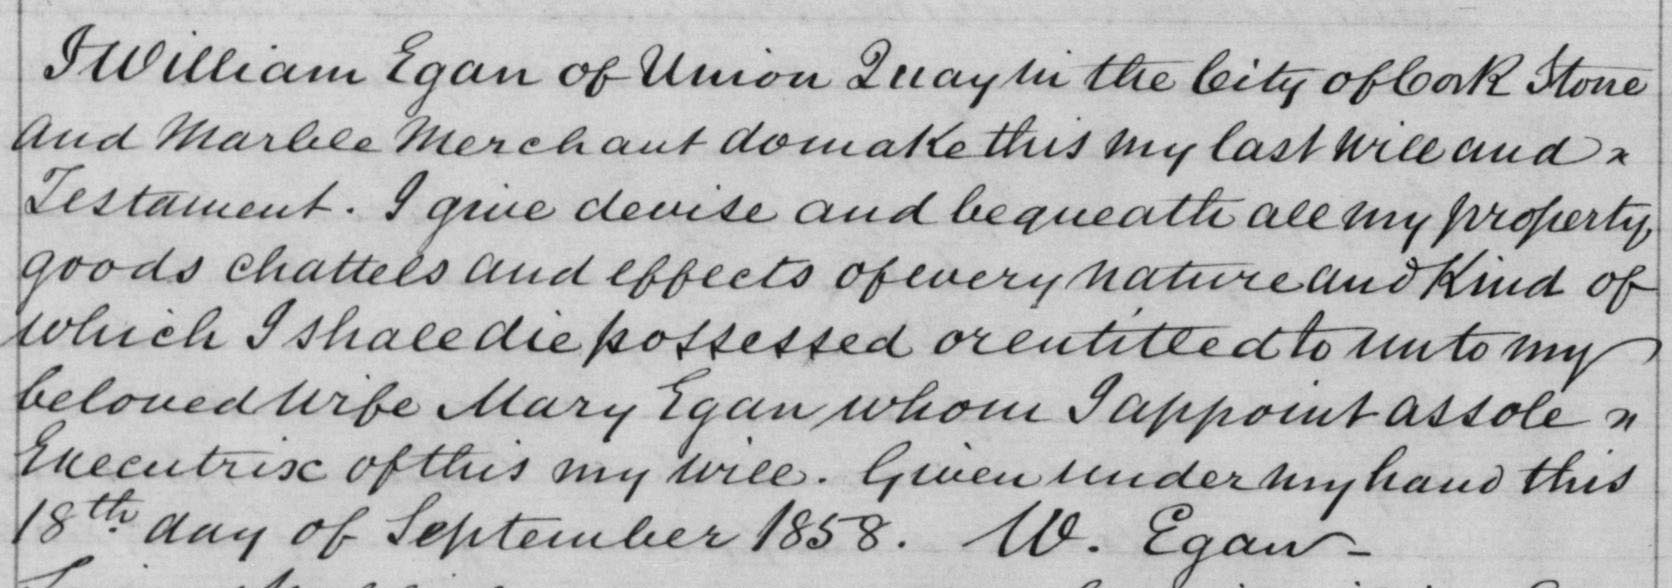 I William Egan of Union Quay in the City of Cork Stone
and Marble Merchant do make this my last will and
Testament. I give devise and bequeath all my property,
goods chattels and effects of every nature and Kind of
which I shall die possessed or entitled to unto my
beloved Wife Mary Egan whom I appoint as sole
Executrix of this my will. Given under my hand this
18th day of September 1858. W. Egan